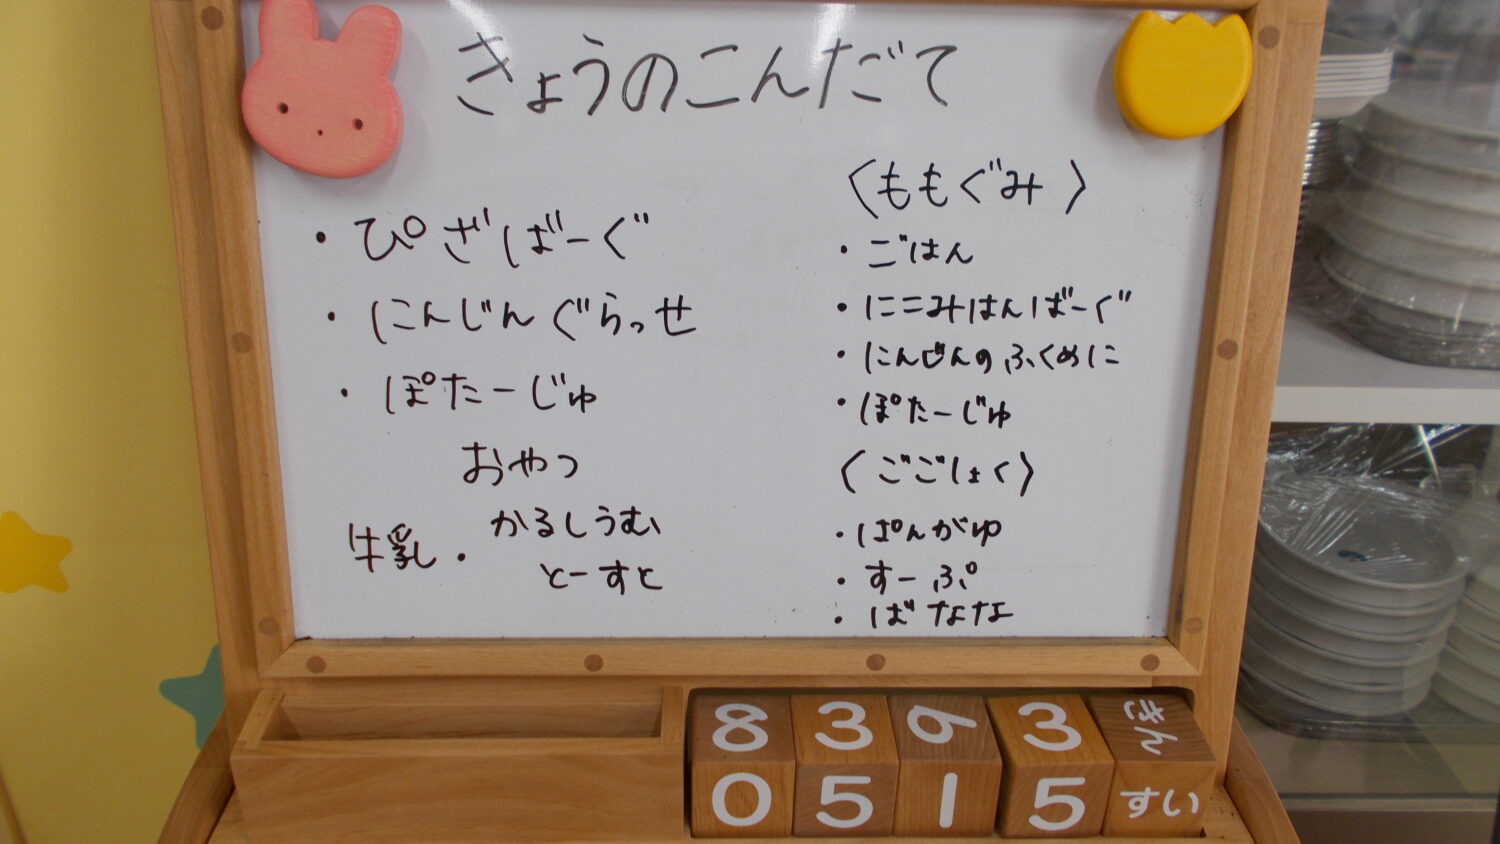 きょうのこんだて
・ぴざばーぐ
・にんじんぐらっせ
・ぽたーじゅ
おやつ
牛乳・かるしうむ
とーすと
〈ももぐみ〉
・ごはん
・にこみはんばーぐ
・にんじんのふくめに
・ぽたーじゅ
〈ごごしょく〉
・ぱんがゆ
・すーぷ
・ばなな
8 3 6 3 きん
0 5 1 5 すい